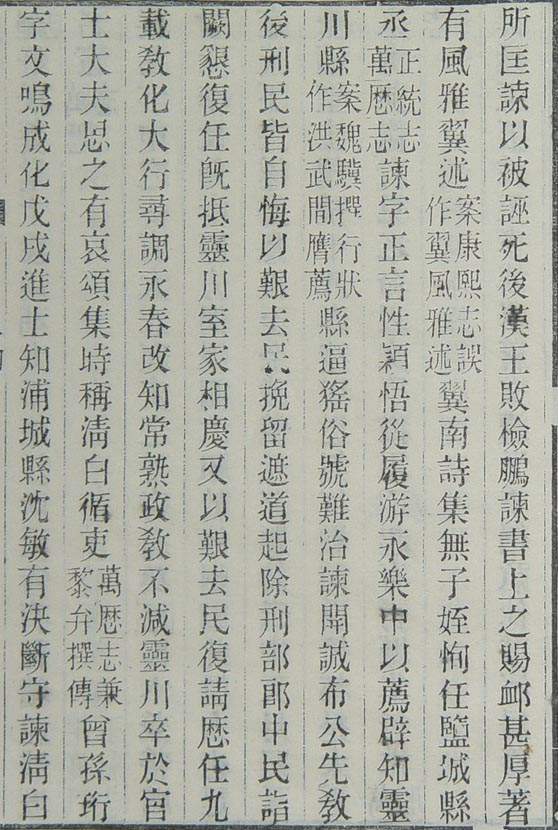 所匡諫以被誣死後漢王敗檢鵬諫書上之賜䘏甚厚著
有風雅翼述案康熙志誤作翼風雅述翼南詩集無子姪恂任鹽城縣
丞正統志萬歴志諫字正言性穎悟從履游永樂中以薦辟知靈
川縣案魏驥撰行狀作洪武間膺薦縣逼猺俗號難治諫開誠布公先教
後刑民皆自悔以艱去民挽留遮道起除刑部郎中民詣
闕懇復任旣抵靈川室家相慶又以艱去民復請歴任九
載敎化大行尋調永春改知常熟政敎不減靈川卒於官
士大夫思之有哀頌集時稱淸白循吏萬歴志兼黎弁撰傳曾孫珩
字文鳴成化戊戌進士知浦城縣沈敏有決斷守諫淸白